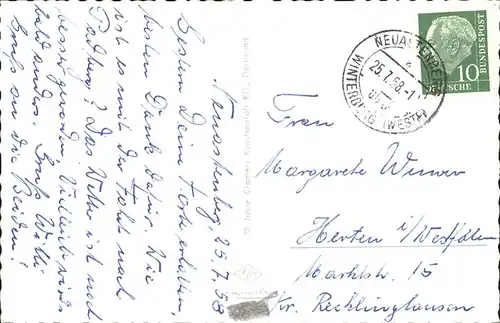 Neuastenberg 25.7.58
Gestern Deine Karte erhalten,
besten Dank dafür. Wie
ist es mit der Fahrt nach
? Das Wetter ist noch
besser geworden. Vielleicht wird's
bald anders. Gruß Willi
Gruß an die Beiden!
50 Jahre Cramers Kunstanstalt KG., Dortmund
NEUASTENBERG
25.7.58.-1
WINTERBERG (WESTF)
DEUTSCHE
BUNDESPOST
10
Frau
Margarete
Herten i/Westfalen
Marktstr. 15
Kr. Recklinghausen